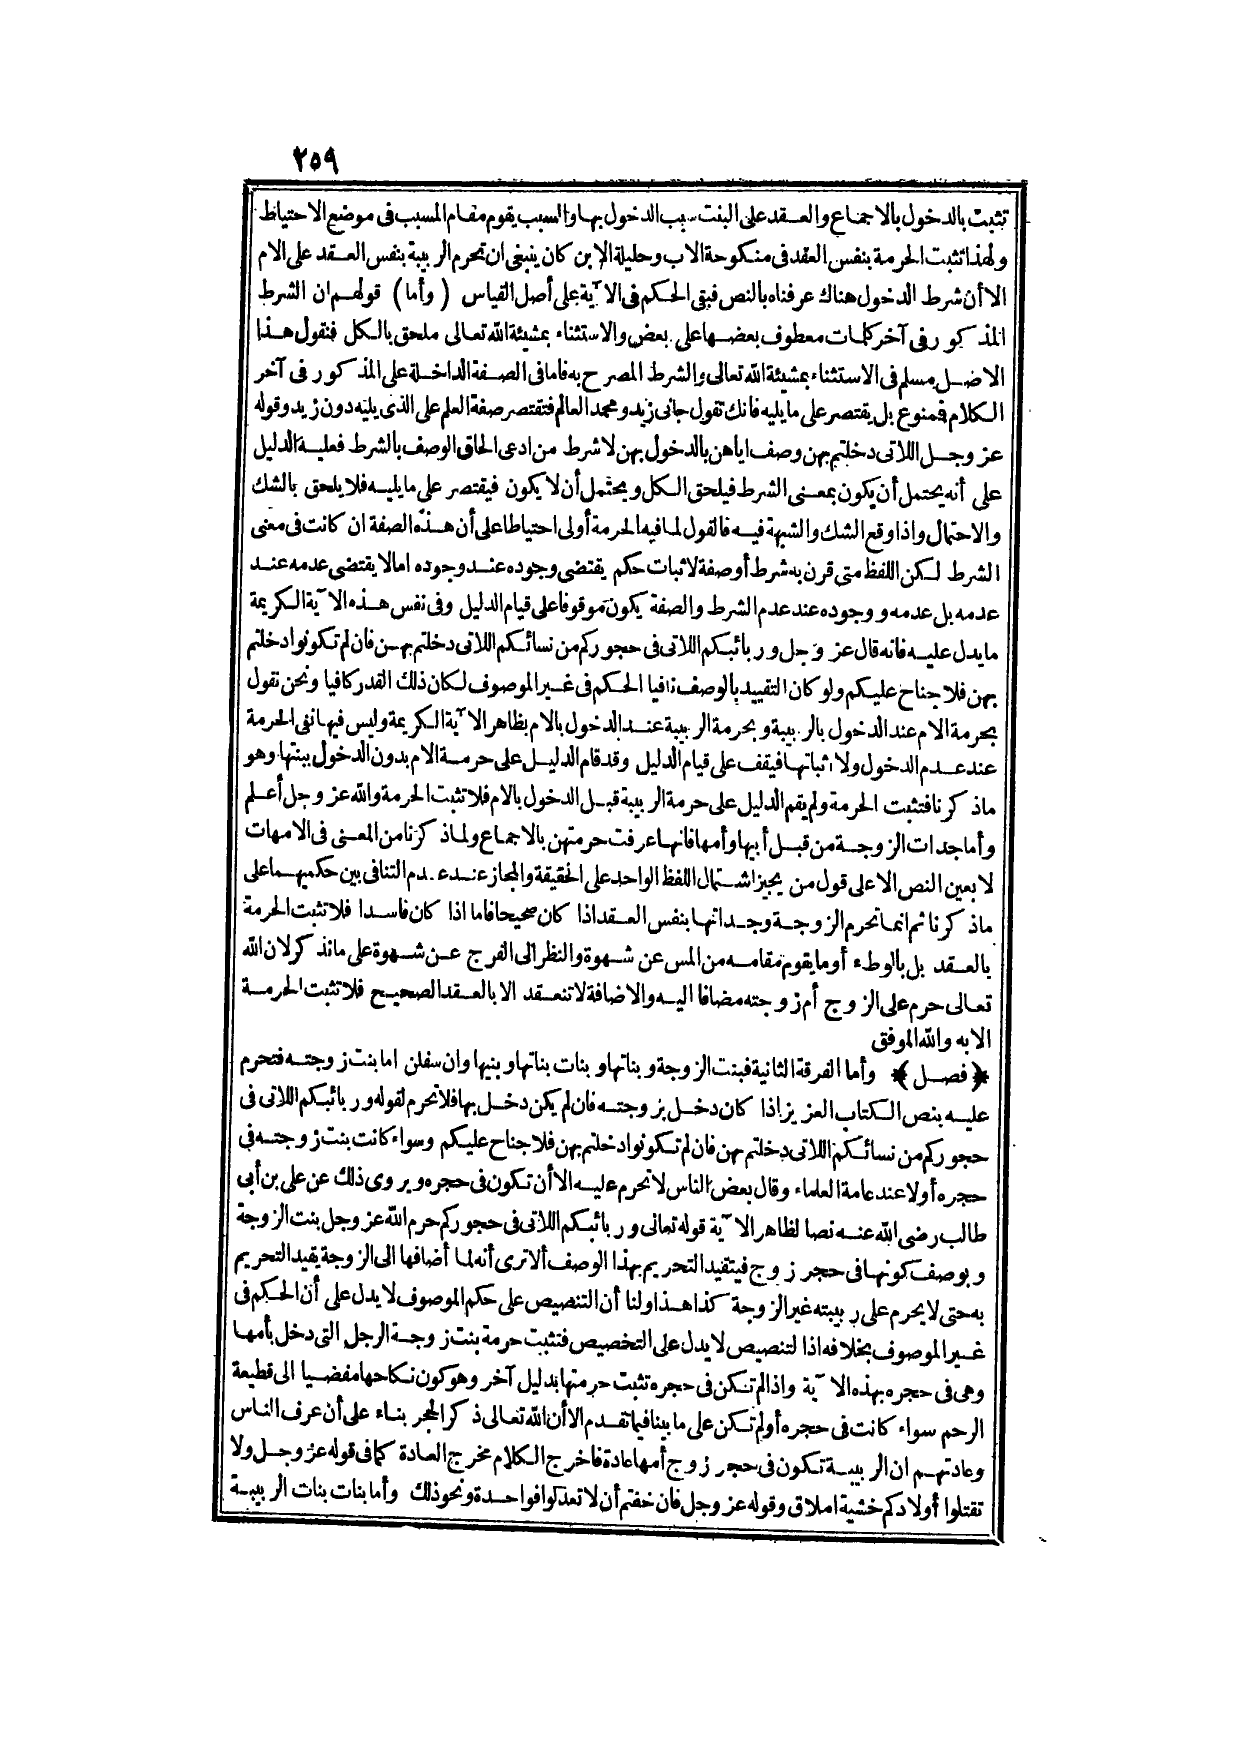 ٢٥٩
تثبت بالدخول بالاجماع والعقد على البنت سبب الدخول بها والسبب يقوم مقام المسبب فى موضع الاحتياط
ولهذا تثبت الحرمة بنفس العقد فى منكوحة الاب وحليلة الابن كان ينبغى ان تحرم الربيبة بنفس العقد على الام
الا أن شرط الدخول هناك عرفناه بالنص فبقى الحكم فى الآية على أصل القياس (وأما) قولهم ان الشرط
المذكور فى آخر كلمات معطوف بعضها على بعض والاستثناء بمشيئة الله تعالى ملحق بالكل فنقول هذا
الاصل مسلم فى الاستثناء بمشيئة الله تعالى والشرط المصرح به فاما فى الصفة الداخلة على المذكور فى آخر
الكلام فممنوع بل يقتصر على ما يليه فانك تقول جانى زيد ومحمد العالم فتقتصر صفة العلم على الذى يليه دون زيد وقوله
عز وجل اللاتى دخلتم بهن وصف اياهن بالدخول بهن لا شرط من ادعى الحاق الوصف بالشرط فعليه الدليل
على أنه يحتمل أن يكون بمعنى الشرط فيلحق الكل ويحتمل أن لا يكون فيقتصر على ما يليه فلا يلحق بالشك
والاحتمال واذا وقع الشك والشبهة فيه فالقول لما فيه الحرمة أولى احتياطا على أن هذه الصفة ان كانت فى معنى
الشرط لكن اللفظ متى قرن به شرط أو صفة لاثبات حكم يقتضى وجوده عند وجوده اما لا يقتضى عدمه عند
عدمه بل عدمه ووجوده عند عدم الشرط والصفة يكون موقوفا على قيام الدليل وفى نفس هذه الآية الكريمة
ما يدل عليه فانه قال عز وجل وربائبكم اللاتى فى حجوركم من نسائكم اللاتى دخلتم بهن فان لم تكونوا دخلتم
بهن فلا جناح عليكم ولو كان التقييد بالوصف نافيا الحكم فى غير الموصوف لكان ذلك القدر كافيا ونحن نقول
بحرمة الام عند الدخول بالربيبة وبحرمة الربيبة عند الدخول بالام بظاهر الآية الكريمة وليس فيها نفى الحرمة
عند عدم الدخول ولا اثباتها فيقف على قيام الدليل وقد قام الدليل على حرمة الام بدون الدخول ببنتها وهو
ما ذكرنا فتثبت الحرمة ولم يقم الدليل على حرمة الربيبة قبل الدخول بالام فلا تثبت الحرمة والله عز وجل أعلم
وأما جدات الزوجة من قبل أبيها وأمها فانها عرفت حرمتهن بالاجماع ولما ذكرنا من المعنى فى الامهات
لا بعين النص الا على قول من يجيز اشتمال اللفظ الواحد على الحقيقة والمجاز عند عدم التنافى بين حكميهما على
ما ذكرنا ثم انما تحرم الزوجة وجداتها بنفس العقد اذا كان صحيحا فاما اذا كان فاسدا فلا تثبت الحرمة
بالعقد بل بالوطء أو ما يقوم مقامه من المس عن شهوة والنظر الى الفرج عن شهوة على ما نذكر لان الله
تعالى حرم على الزوج أم زوجته مضافا اليه والاضافة لا تنعقد الا بالعقد الصحيح فلا تثبت الحرمة
الا به والله الموفق
﴿فصل﴾ وأما الفرقة الثانية فبنت الزوجة وبناتها وبنات بناتها وبنيها وان سفلن اما بنت زوجته فتحرم
عليه بنص الكتاب العزيز اذا كان دخل بزوجته فان لم يكن دخل بها فلا تحرم لقوله وربائبكم اللاتى فى
حجوركم من نسائكم اللاتى دخلتم بهن فان لم تكونوا دخلتم بهن فلا جناح عليكم وسواء كانت بنت زوجته فى
حجره أولا عند عامة العلماء وقال بعض الناس لا تحرم عليه الا أن تكون فى حجره ويروى ذلك عن على بن أبى
طالب رضى الله عنه نصا لظاهر الآية قوله تعالى وربائبكم اللاتى فى حجوركم حرم الله عز وجل بنت الزوجة
وبوصف كونها فى حجر زوج فيتقيد التحريم بهذا الوصف ألا ترى أنه لما أضافها الى الزوجة يقيد التحريم
به حتى لا يحرم على ربيبته غير الزوجة كذا هذا ولنا أن التنصيص على حكم الموصوف لا يدل على أن الحكم فى
غير الموصوف بخلافه اذ التنصيص لا يدل على التخصيص فتثبت حرمة بنت زوجة الرجل التى دخل بأمها
وهى فى حجره بهذه الآية واذا لم تكن فى حجره تثبت حرمتها بدليل آخر وهو كون نكاحها مفضيا الى قطيعة
الرحم سواء كانت فى حجره أو لم تكن على ما بينا فيما تقدم الا أن الله تعالى ذكر الحجر بناء على أن عرف الناس
وعادتهم ان الربيبة تكون فى حجر زوج أمها عادة فاخرج الكلام مخرج العادة كما فى قوله عز وجل ولا
تقتلوا أولادكم خشية املاق وقوله عز وجل فان خفتم أن لا تعدلوا فواحدة ونحو ذلك وأما بنات بنات الربيبة